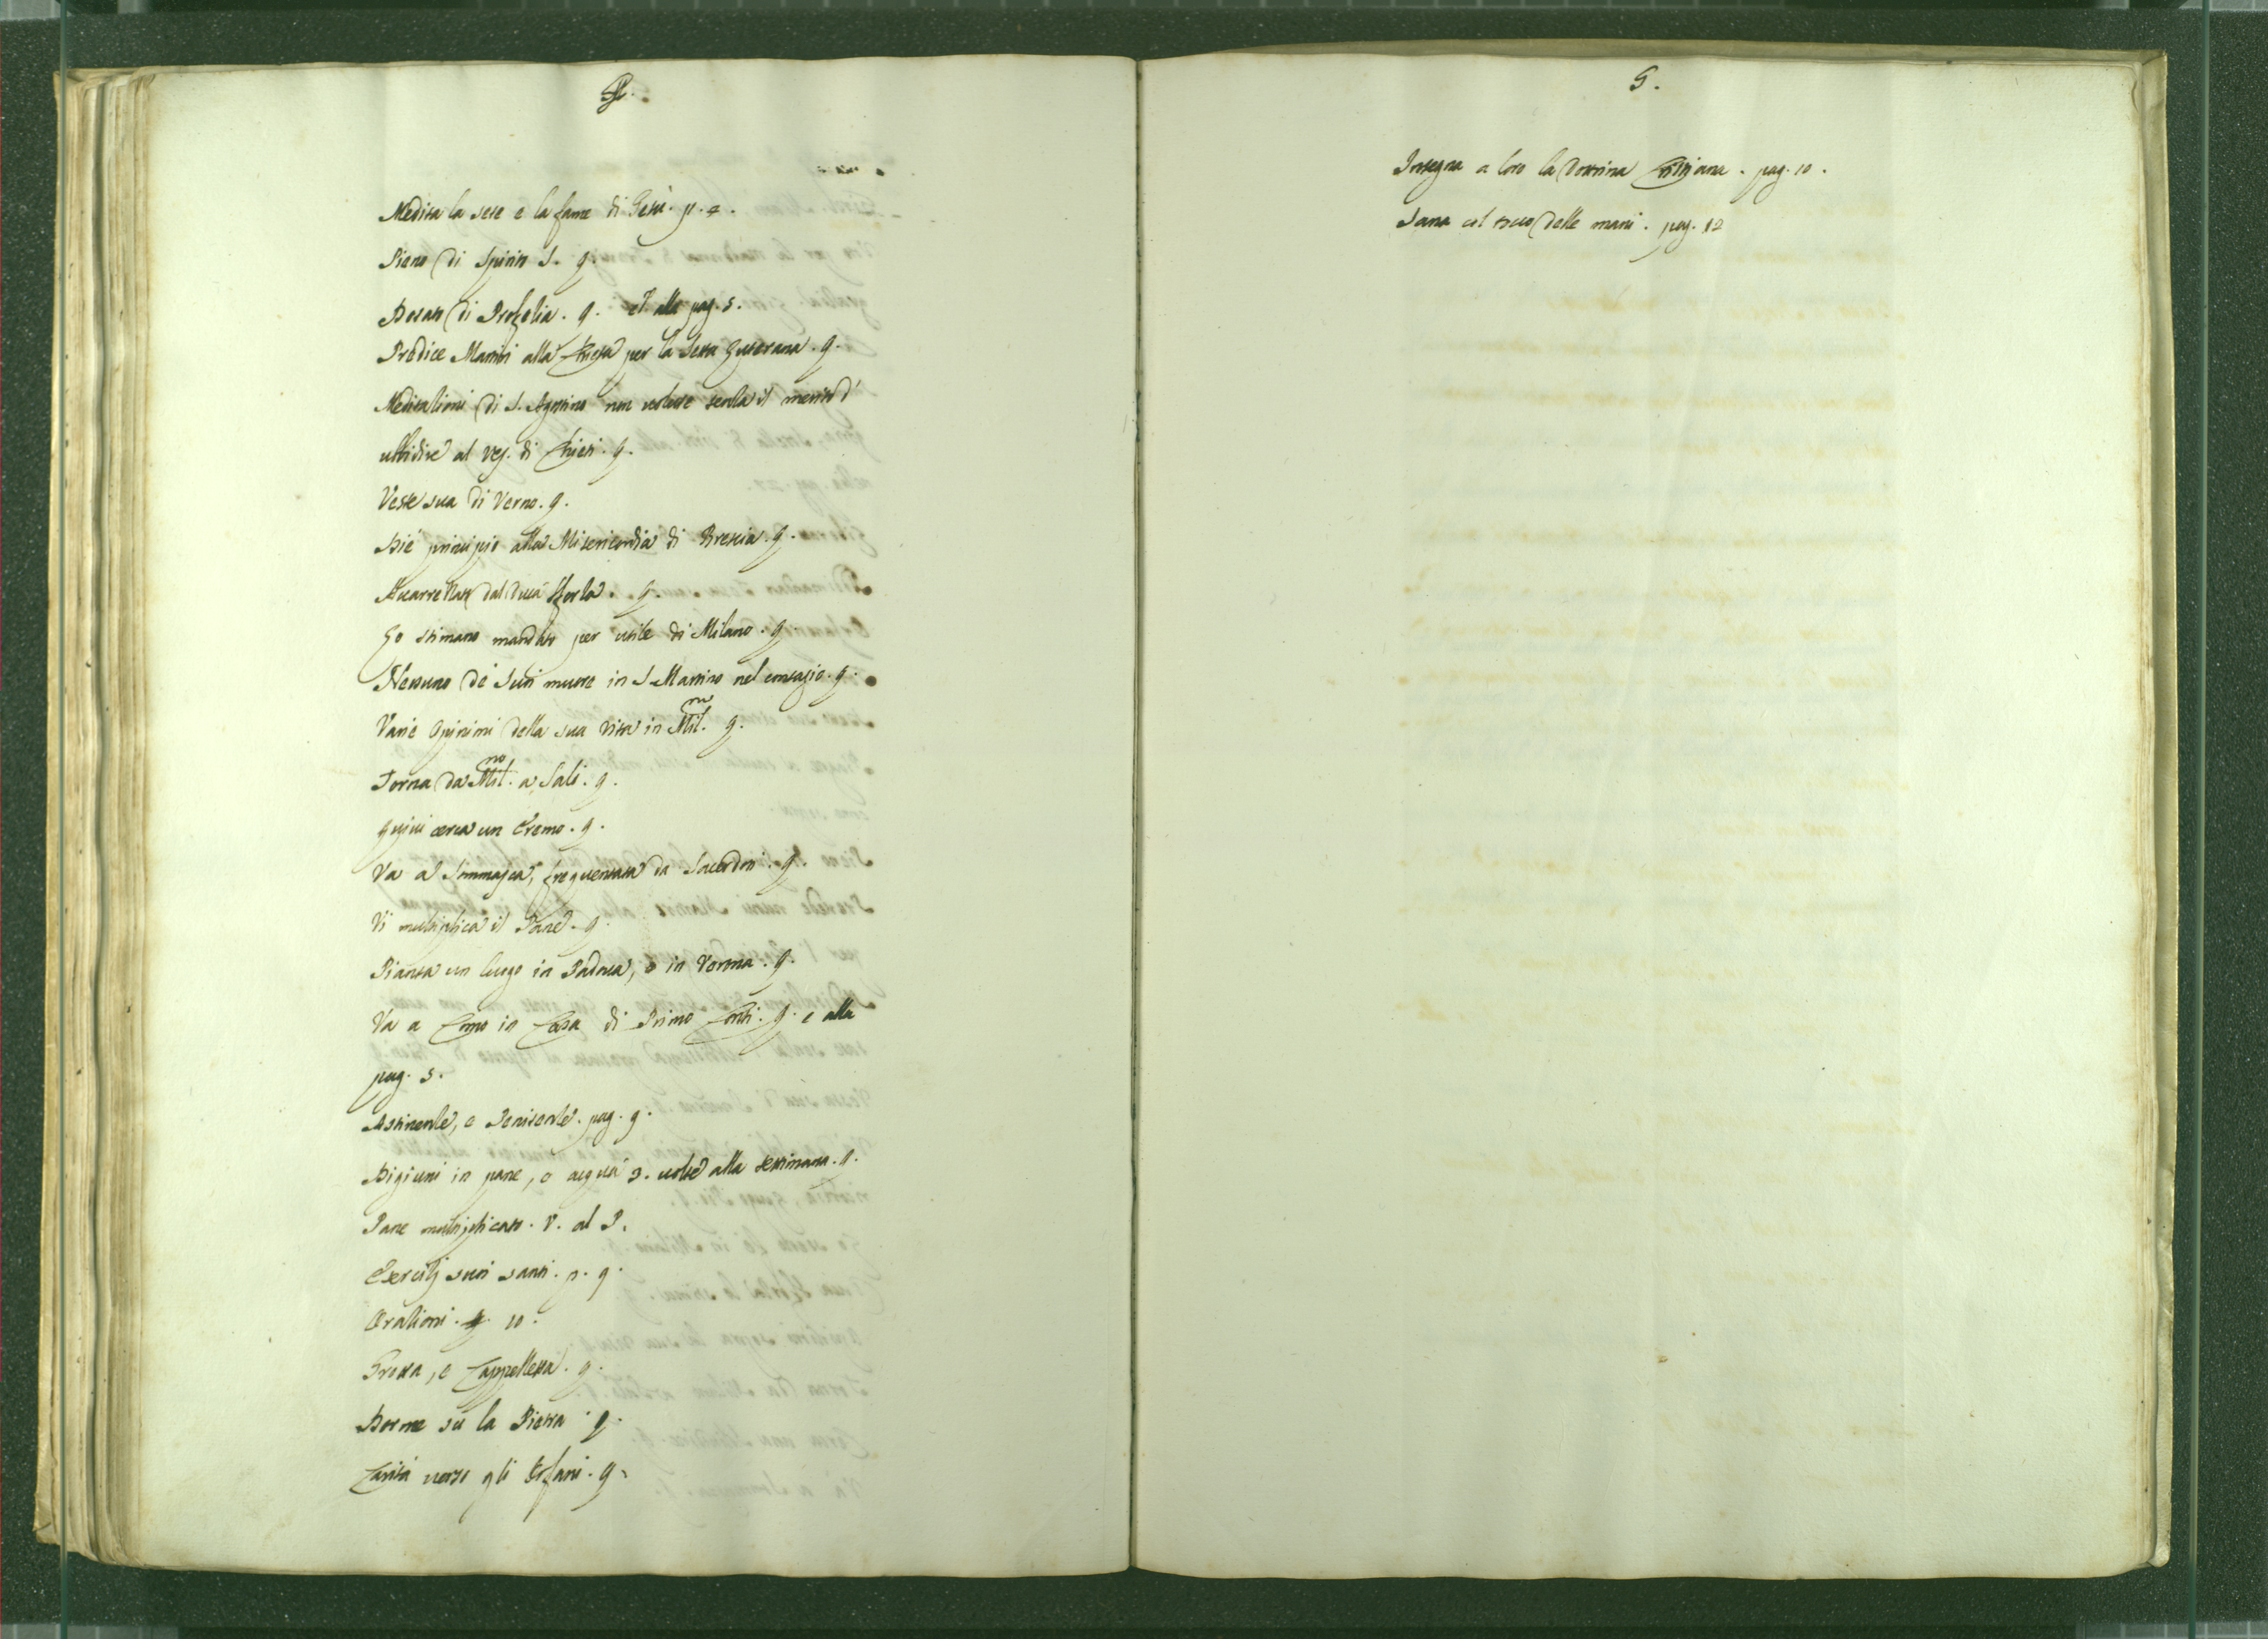 Medita la sete e la fame di Gesù. p. 4.
Pieno di Spirito S. 9.
Dotato di Profezia. 9. et alla pag. 5.
Predice Martiri alla Chiesa per la Setta Luterana. 9.
Meditazioni di S. Agostino non volere senza il merito d'
ubbidire al Ves. di Chieti. 9.
Veste sua di Verno. 9.
Diè principio alla Misericordia di Brescia. 9.
Accarezzato dal Duca Sforza. 9.
Lo stimano mandato per utile di Milano. 9.
Nessuno de' suoi muore in S. Martino nel contagio. 9.
Varie Opinioni della sua vita in Mil.no 9.
Torna da Mil.no a Salò. 9.
Quivi cerca un Eremo. 9.
Va a Sommasca, frequentata da Sacerdoti. 9.
Vi multiplica il Pane. 9.
Pianta un luogo in Padova, o in Verona. 9.
Va a Como in Casa di Primo Conti. 9. e alla
pag. 5.
Astinente, e Penitente. pag. 9.
Digiuni in pane, e acqua 3. volte alla settimana. 9.
Pane multiplicato. V. al P.
Esercitij suoi santi. p. 9.
Orazioni. 10.
Grotta, e Cappelletta. 9.
Dorme sù la Pietra. 9.
Carità verso gli Orfani. 9.
5.
Insegna a loro la Dottrina Cristiana. pag. 10.
Sana col tocco delle mani. pag. 12